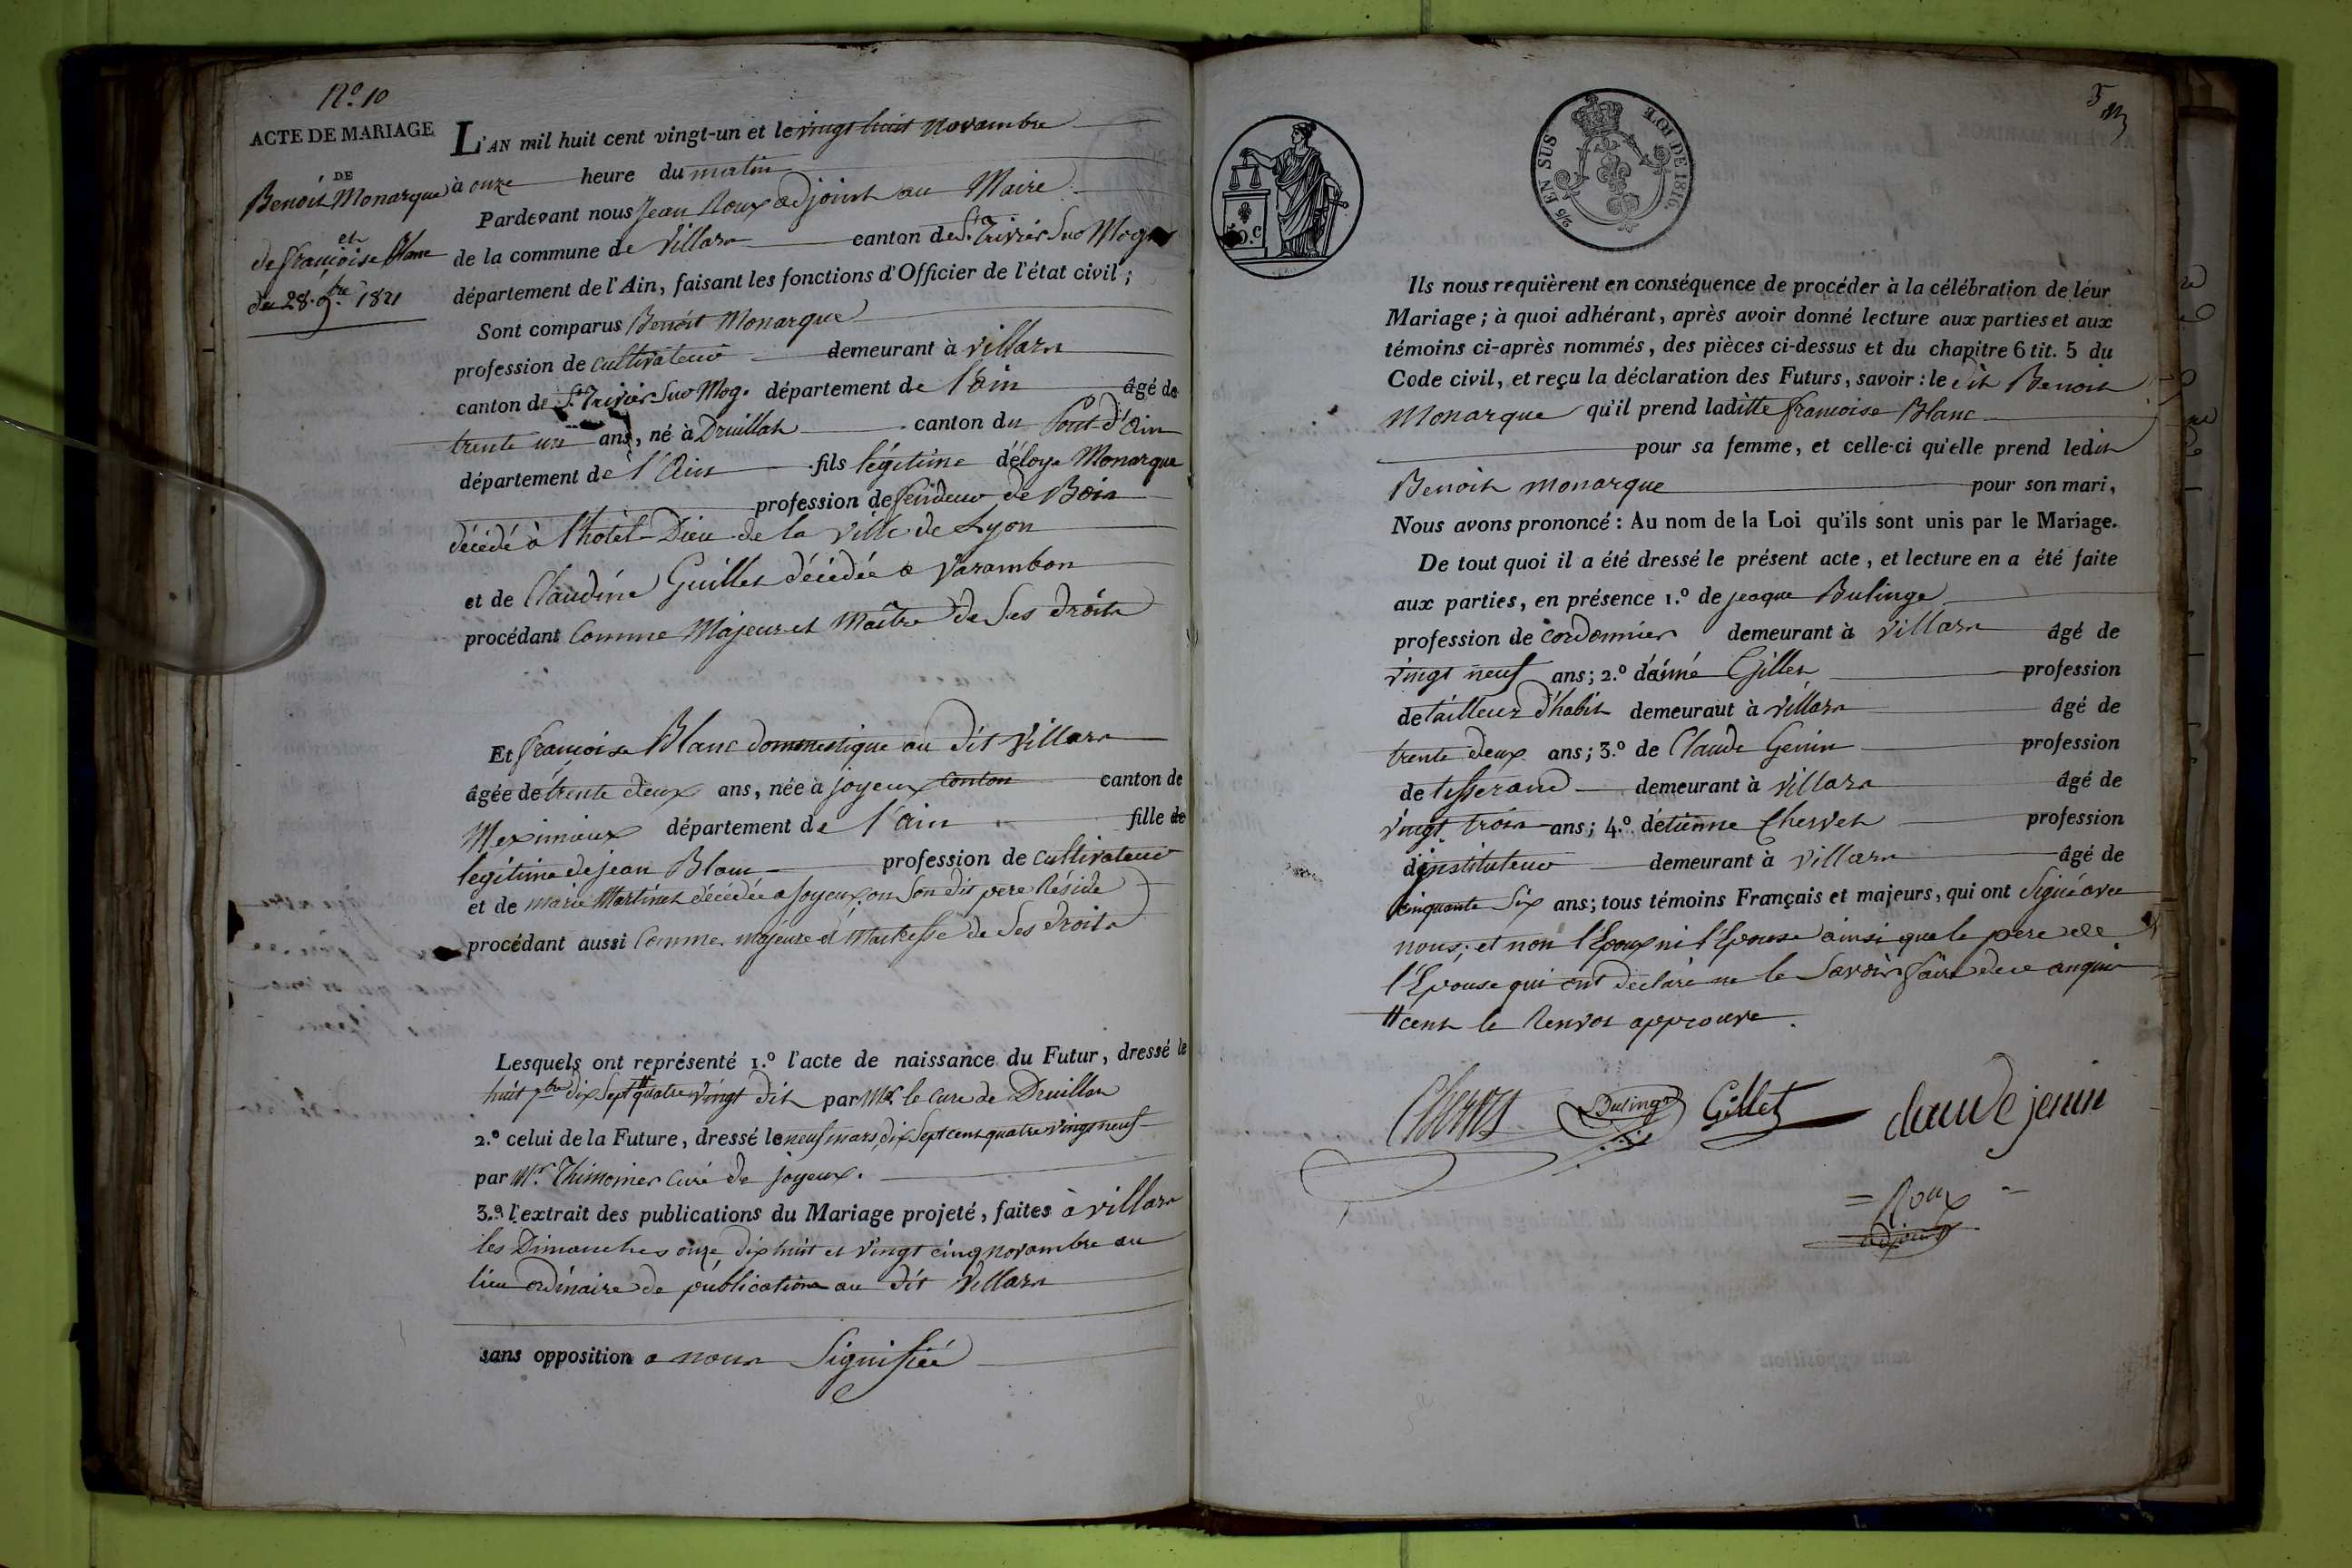 N.º 10
ACTE DE MARIAGE
DE
Benoit Monarque
et
de françoise Blanc
du 28. 9.bre 1821
L'AN mil huit cent vingt-un et le vingt huit novambre
à onze heure du matin
Pardevant nous Jean Roux adjoint au Maire
de la commune de Villars canton de St. Trivier Sur Mog
département de l'Ain, faisant les fonctions d'Officier de l'état civil;
Sont comparus Benoit Monarque
profession de cultivateur demeurant à villars
canton de St. Trivier Sur Mog. département de l'ain âgé de
trente un ans, né à Druillat canton du Pont d'Ain
département de l'Ain fils légitime d'éloye Monarque
profession de fendeur de Bois
décédé à l'hotel-Dieu de la ville de Lyon
et de Claudine Guillet décédée a Varambon
procédant Comme Majeur et Maître de Ses droits
Et françoise Blanc dommestique au dit Villars
âgée de trente deux ans, née à joyeux canton canton de
Meximieux département de l'ain fille de
legitime de jean Blanc profession de cultivateur
et de marie Martinet décédée a joyeux ou Son dit pere Réside
procédant aussi Comme majeure et Maitresse de Ses droits
Lesquels ont représenté 1.º l'acte de naissance du Futur, dressé le
huit 7bre dix Sept # quatre vingt dix par Mr le cure de Druillat
2.º celui de la Future, dressé le neuf mars dix Sept cent quatre vingt neuf
par Mr. Thimonier Curé de joyeux.
3.º l'extrait des publications du Mariage projeté, faites à villars
les Dimanches onze dix huit et vingt cinq novambre au
lieu ordinaire de publications au dit Villars
sans opposition a nous Signifiée
LOI DE 1816.
EN SUS
5
Ils nous requièrent en conséquence de procéder à la célébration de leur
Mariage; à quoi adhérant, après avoir donné lecture aux parties et aux
témoins ci-après nommés, des pièces ci-dessus et du chapitre 6 tit. 5 du
Code civil, et reçu la déclaration des Futurs, savoir: le dit Benoit
Monarque qu'il prend laditte francoise Blanc
pour sa femme, et celle-ci qu'elle prend ledit
Benoit monarque pour son mari,
Nous avons prononcé: Au nom de la Loi qu'ils sont unis par le Mariage.
De tout quoi il a été dressé le présent acte, et lecture en a été faite
aux parties, en présence 1.º de jeaque Bulinge
profession de Cordonnier demeurant à villars âgé de
vingt neuf ans; 2.º d'aimé Gillet profession
de tailleur d'habit demeurant à villars âgé de
trente deux ans; 3.º de Claude Genin profession
de tisserand demeurant à Villars âgé de
vingt trois ans; 4.º d'etienne Chervet profession
d'instituteur demeurant à villars âgé de
cinquante Six ans; tous témoins Français et majeurs, qui ont Signé avec
nous; et non l'Epoux ni l'Epouse ainsi que le pere de
l'Epouse qui ont déclaré ne le Savoir faire de ce anquis
# cent le Renvoi approuvé.
Chervet Bulinge Gillet claude jenin
Roux
adjoint